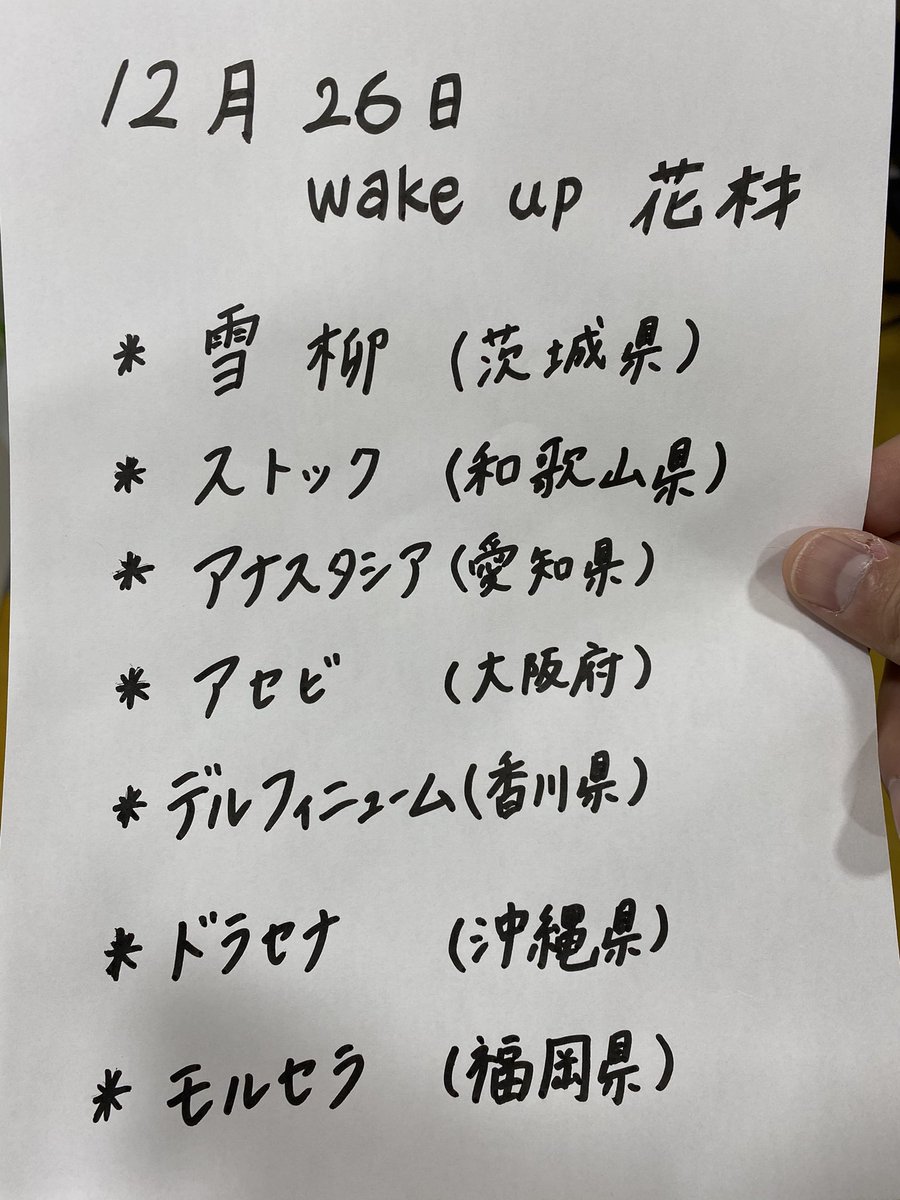 12月26日
wake up 花材
* 雪柳 (茨城県)
* ストック (和歌山県)
* アナスタシア (愛知県)
* アセビ (大阪府)
* デルフィニューム (香川県)
* ドラセナ (沖縄県)
* モルセラ (福岡県)